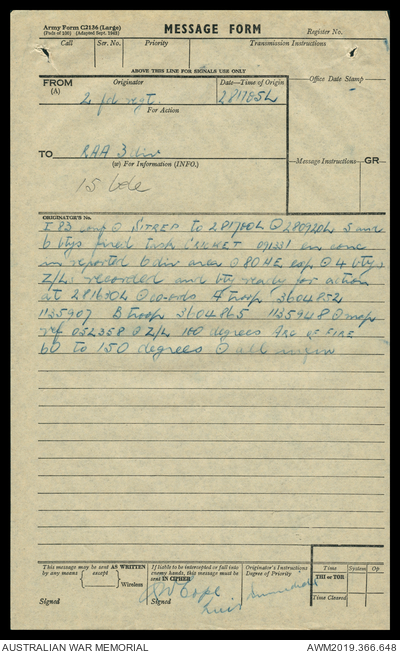 Army Form C2136 (Large)
(Pads of 100) (Adapted Sept. 1942)
MESSAGE FORM
Register No.
Call Ser. No. Priority Transmission Instructions
ABOVE THIS LINE FOR SIGNALS USE ONLY
FROM Originator Date—Time of Origin Office Date Stamp
(A) 2 fd regt 281705L
For Action
TO RAA 3 div
(W) For Information (INFO.) Message Instructions GR
15 bde
ORIGINATOR'S No.
I 83 SITREP to 281700L 280920L 5 and
6 btys fired task CRICKET 091331 on conc
in reported b div area 80 HE exp 4 bty
Z/L recorded and bty ready for action
at 281630L co-ords A troop 3604852
1135907 B troop 3604865 1135948 map
ref 052358 Z/L 100 degrees ARC OF FIRE
60 to 150 degrees all infm
This message may be sent AS WRITTEN
by any means except Wireless
If liable to be intercepted or fall into
enemy hands, this message must be
sent IN CIPHER
Originator's Instructions
Degree of Priority
Time System Op
THI or TOR
Time Cleared
Cope
Lieut
Immediate
Signed Signed
AUSTRALIAN WAR MEMORIAL AWM2019.366.648